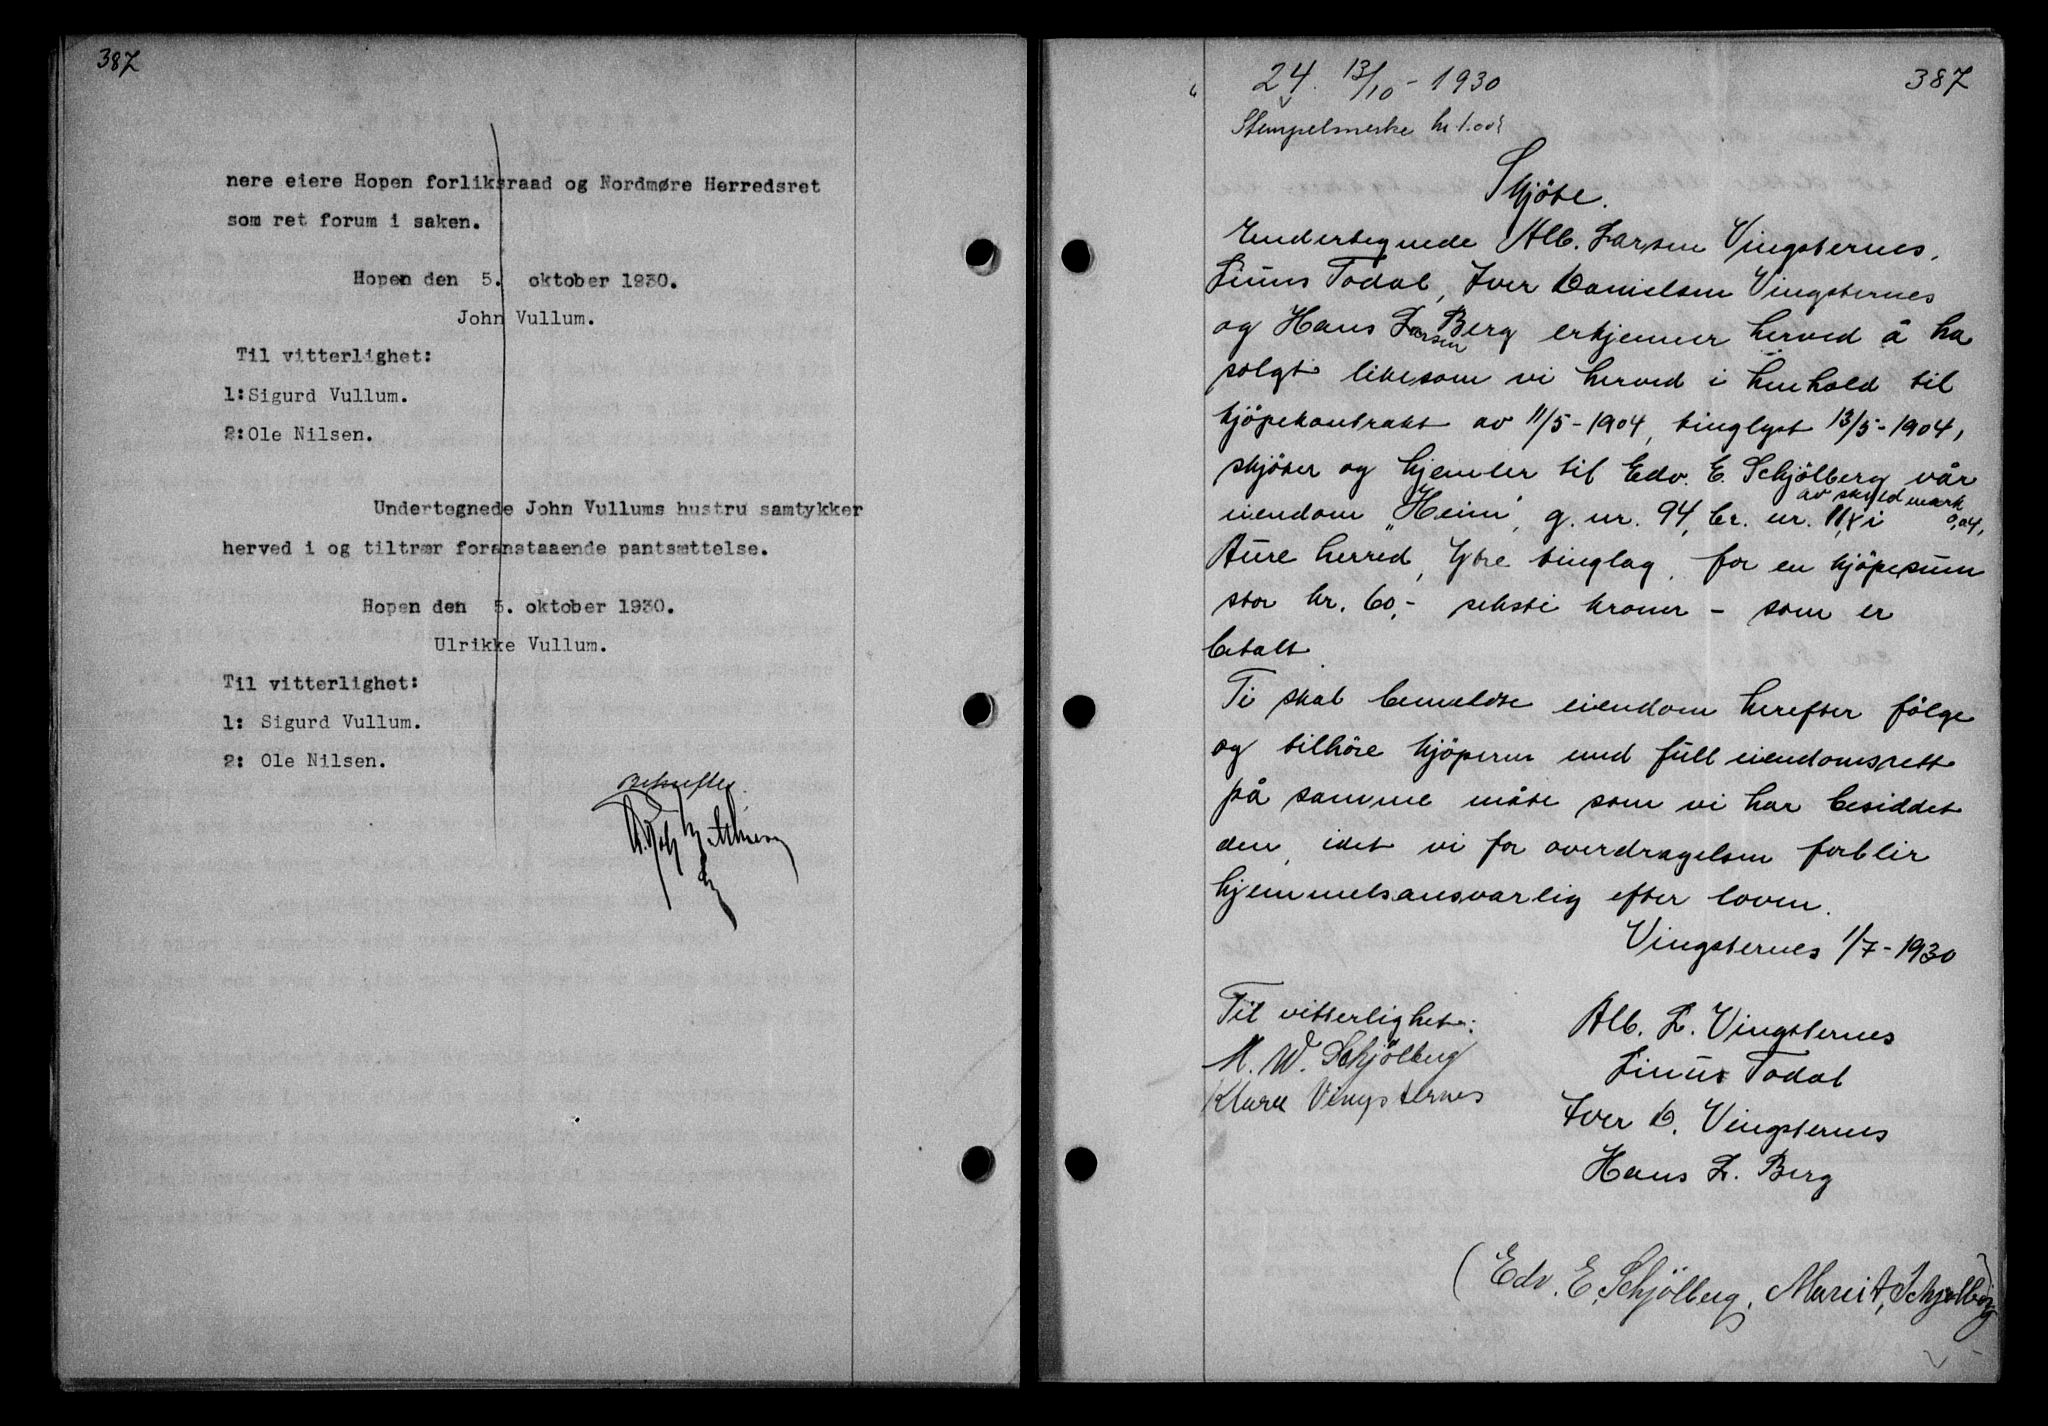 387
nere eiere Hopen forliksraad og Nordmøre Herredsret
som ret forum i saken.
Hopen den 5. oktober 1930.
John Vullum.
Til vitterlighet:
1: Sigurd Vullum.
2: Ole Nilsen.
Undertegnede John Vullums hustru samtykker
herved i og tiltrær foranstaaende pantsættelse.
Hopen den 5. oktober 1930.
Ulrikke Vullum.
Til vitterlighet:
1: Sigurd Vullum.
2: Ole Nilsen.
Bekreftes
24. 13/10 - 1930
387
Stempelmerke kr 1.00
Skjöte.
Undertegnede Alb. Larsen Vingsternes,
Linus Todal, Iver Danielsen Vingsternes
og Hans Larsen Berg erkjenner herved å ha
solgt likesom vi herved i henhold til
kjöpekontrakt av 11/5-1904, tinglyst 13/5-1904,
skjöter og hjemler til Edv. E. Schjölberg vår
eiendom „Heim", g. nr. 94, br. nr. 11, av skyld mark 0,04, i
Aure herred, Ytre tinglag, for en kjöpesum
stor kr. 60,- seksti kroner - som er
betalt.
Ti skal bemeldte eiendom herefter fölge
og tilhöre kjöperen med full eiendomsrett
på samme måte som vi har besiddet
den, idet vi for overdragelsen forblir
hjemmelsansvarlig efter loven.
Vingsternes 1/7-1930
Til vitterlighet:
M. W. Schjölberg
Klara Vingsternes
Alb. L. Vingsternes
Linus Todal
Iver D. Vingsternes
Hans L. Berg
(Edv. E. Schjölberg, Marit A. Schjølberg)